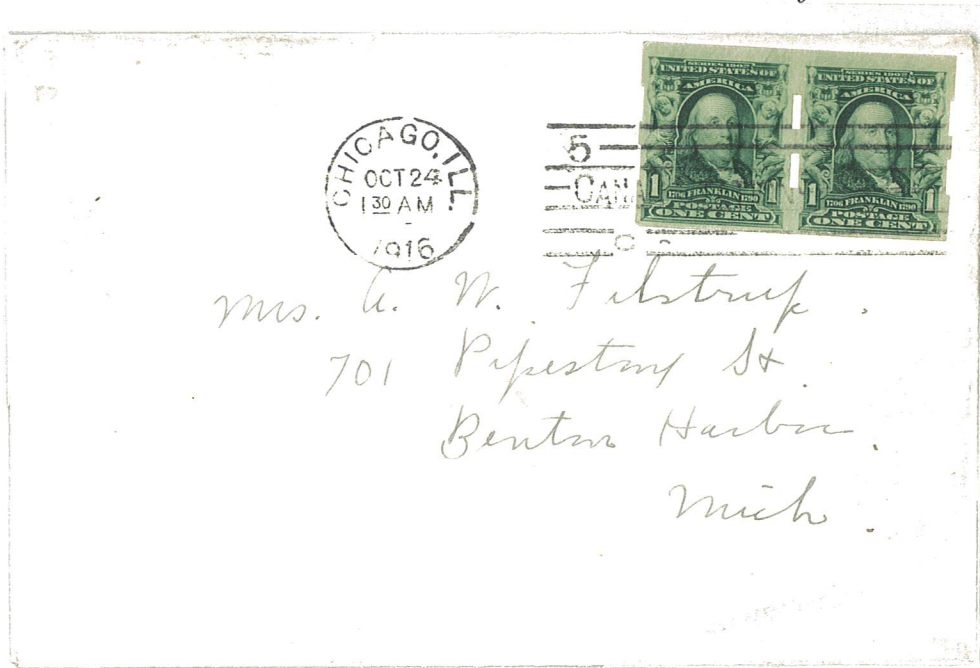 CHICAGO, ILL.
OCT 24
1 30 AM
1916
5
CANA
SERIES 1902
UNITED STATES OF
AMERICA
1 1
1706 FRANKLIN 1790
POSTAGE
ONE CENT
SERIES 1902
UNITED STATES OF
AMERICA
1 1
1706 FRANKLIN 1790
POSTAGE
ONE CENT
Mrs. A. W. Filstrup.
701 Pipestone St.
Benton Harbor.
Mich.